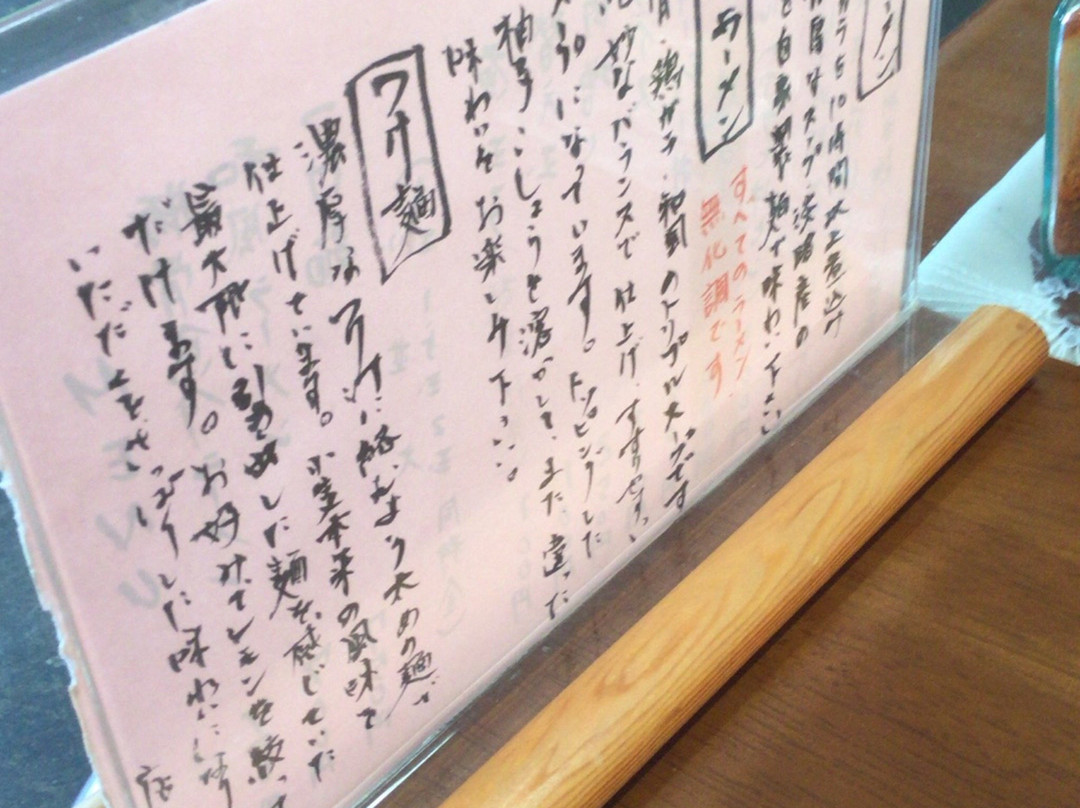 ーメン
から5、10時間以上煮込み
スープ、淡路産の
と自家製麺で味わい下さい
ラーメン
すべてのラーメン
無化調です
鶏ガラ、和風のトリプルスープです
妙なバランスで仕上げ、すすりやすい
ようになっています。トッピングした
柚子こしょうを溶かして、また違った
味わいをお楽しみ下さい。
つけ麺
濃厚なつけ汁に絡むよう太めの麺で
仕上げています。小麦本来の風味を
最大限に引き出した麺を感じていた
だけます。お好みでレモンを絞って
いただくとさっぱりした味わいになり
店